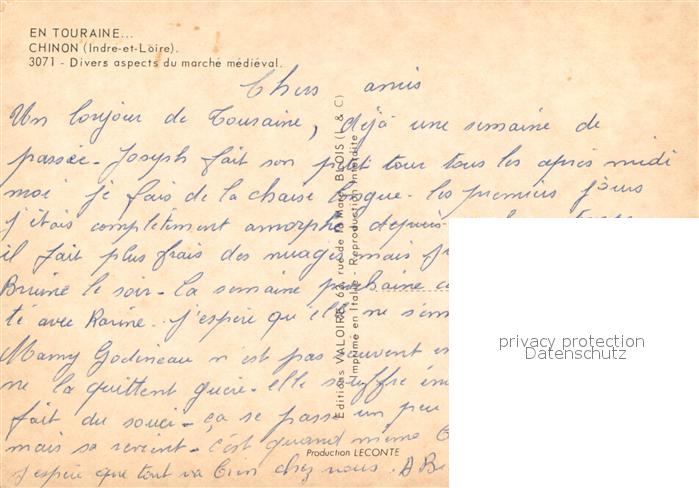 EN TOURAINE...
CHINON (Indre-et-Loire).
3071 - Divers aspects du marché médiéval.
Chers amis
Un bonjour de Touraine, déjà une semaine de
passée - Joseph fait son petit tour tous les après midi
moi je fais de la chaise longue - les premiers jours
j'étais complètement amorphe depuis
il fait plus frais des nuages mais
Brume le soir - la semaine prochaine
té avec Karine - j'espère qu'elle ne s'en
Mamy Godineau n'est pas souvent
ne la quittent guère - elle souffre
fait du souci - ça se passe un peu
mais sa revient - c'est quand même
j'espère que tout va bien chez vous. A Bi
Editions VALOIRE, 63, rue de la Mare, BLOIS (L & C)
Imprimé en Italie - Reproduction interdite
Production LECONTE
privacy protection
Datenschutz